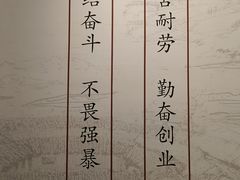 苦耐劳 勤奋创业
结奋斗 不畏强暴